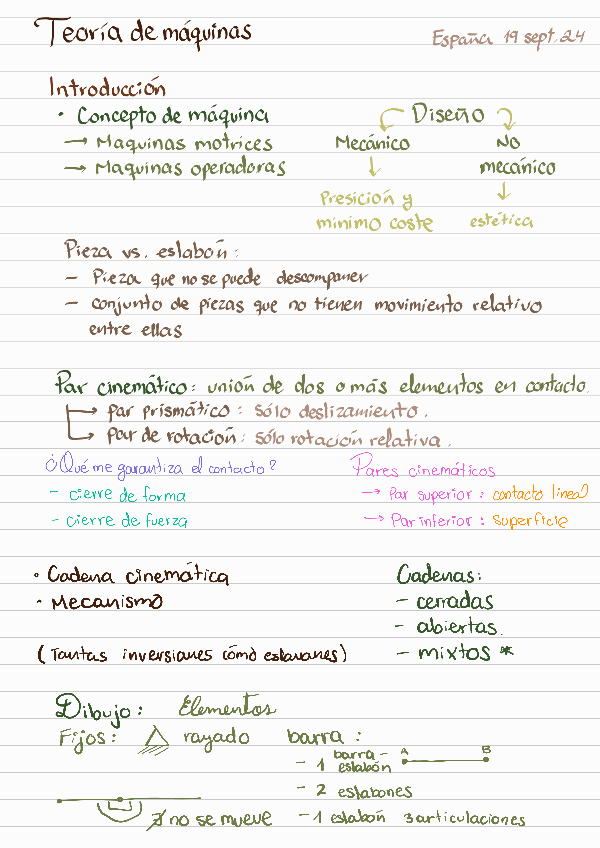 Teoría de máquinas
España 19 sept. 24
Introducción
• Concepto de máquina
→ Maquinas motrices
→ Maquinas operadoras
Diseño
Mecánico
No mecánico
Presición y
minimo coste
estética
Pieza vs. eslabón:
- Pieza que no se puede descomponer
- conjunto de piezas que no tienen movimiento relativo
entre ellas
Par cinemático: unión de dos o más elementos en contacto.
→ par prismático: sólo deslizamiento.
→ Par de rotación: sólo rotación relativa.
¿Qué me garantiza el contacto?
- cierre de forma
- cierre de fuerza
Pares cinemáticos
→ Par superior: contacto lineal
→ Par inferior: superficie
• Cadena cinemática
• Mecanismo
(Tantas inversiones cómo eslavones)
Cadenas:
- cerradas
- abiertas.
- mixtos *
Dibujo: Elementos
Fijos: rayado
no se mueve
barra:
- 1 barra - 
eslabón
A B
- 2 eslabones
- 1 eslabón 3 articulaciones